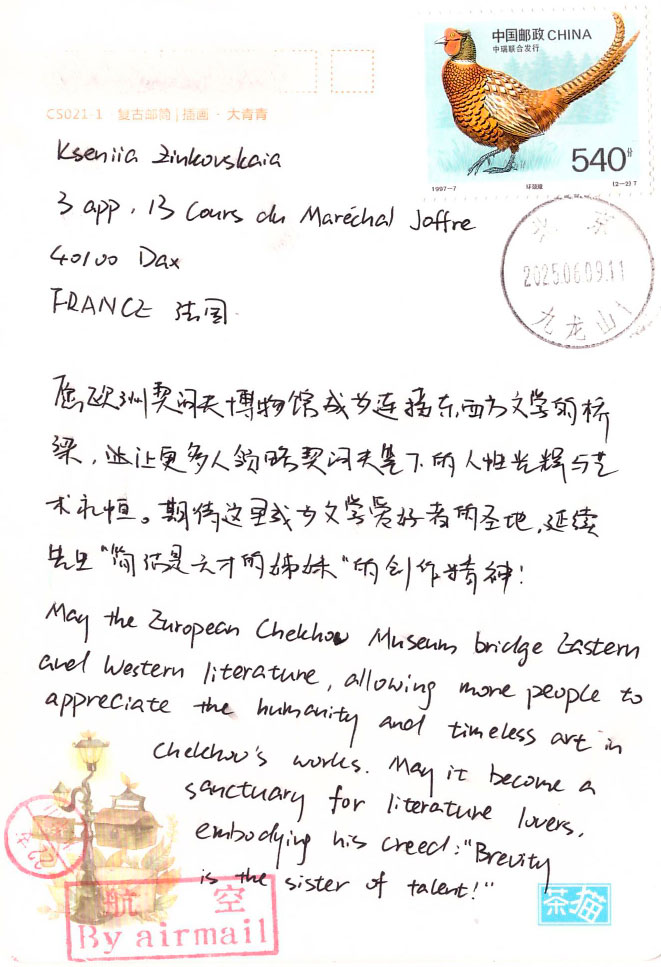 中国邮政 CHINA
中瑞联合发行
540分
1997-7 环颈雉 (2-2) T
CS021-1 复古邮简|插画·大青青
Kseniia Zinkovskaia
3 app, 13 Cours du Maréchal Joffre
40100 Dax
FRANCE 法国
北京
2025.06.09.11
九龙山1
愿欧洲契诃夫博物馆成为连接东西方文学的桥
梁，让更多人领略契诃夫笔下的人性光辉与艺
术永恒。期待这里成为文学爱好者的圣地，延续
先生"简洁是天才的姊妹"的创作精神！
May the European Chekhov Museum bridge Eastern
and Western literature, allowing more people to
appreciate the humanity and timeless art in
Chekhov's works. May it become a
sanctuary for literature lovers,
embodying his creed: "Brevity
is the sister of talent!"
航空
By airmail
茶猫